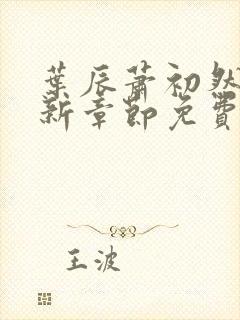 葉辰蕭初然
新章節免費
王波